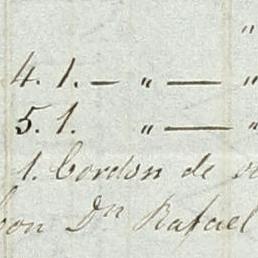 "
4. 1. — " — "
5. 1. " — "
1. Cordon de
Dn Rafael